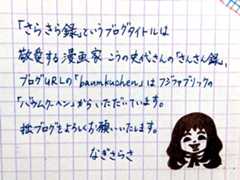 「さらさら録」というブログタイトルは
敬愛する漫画家 こうの史代さんの「さんさん録」、
ブログURLの「baumkuchen」はフジファブリックの
「バウムクーヘン」からいただいています。
拙ブログをよろしくお願いいたします。
なぎさらさ